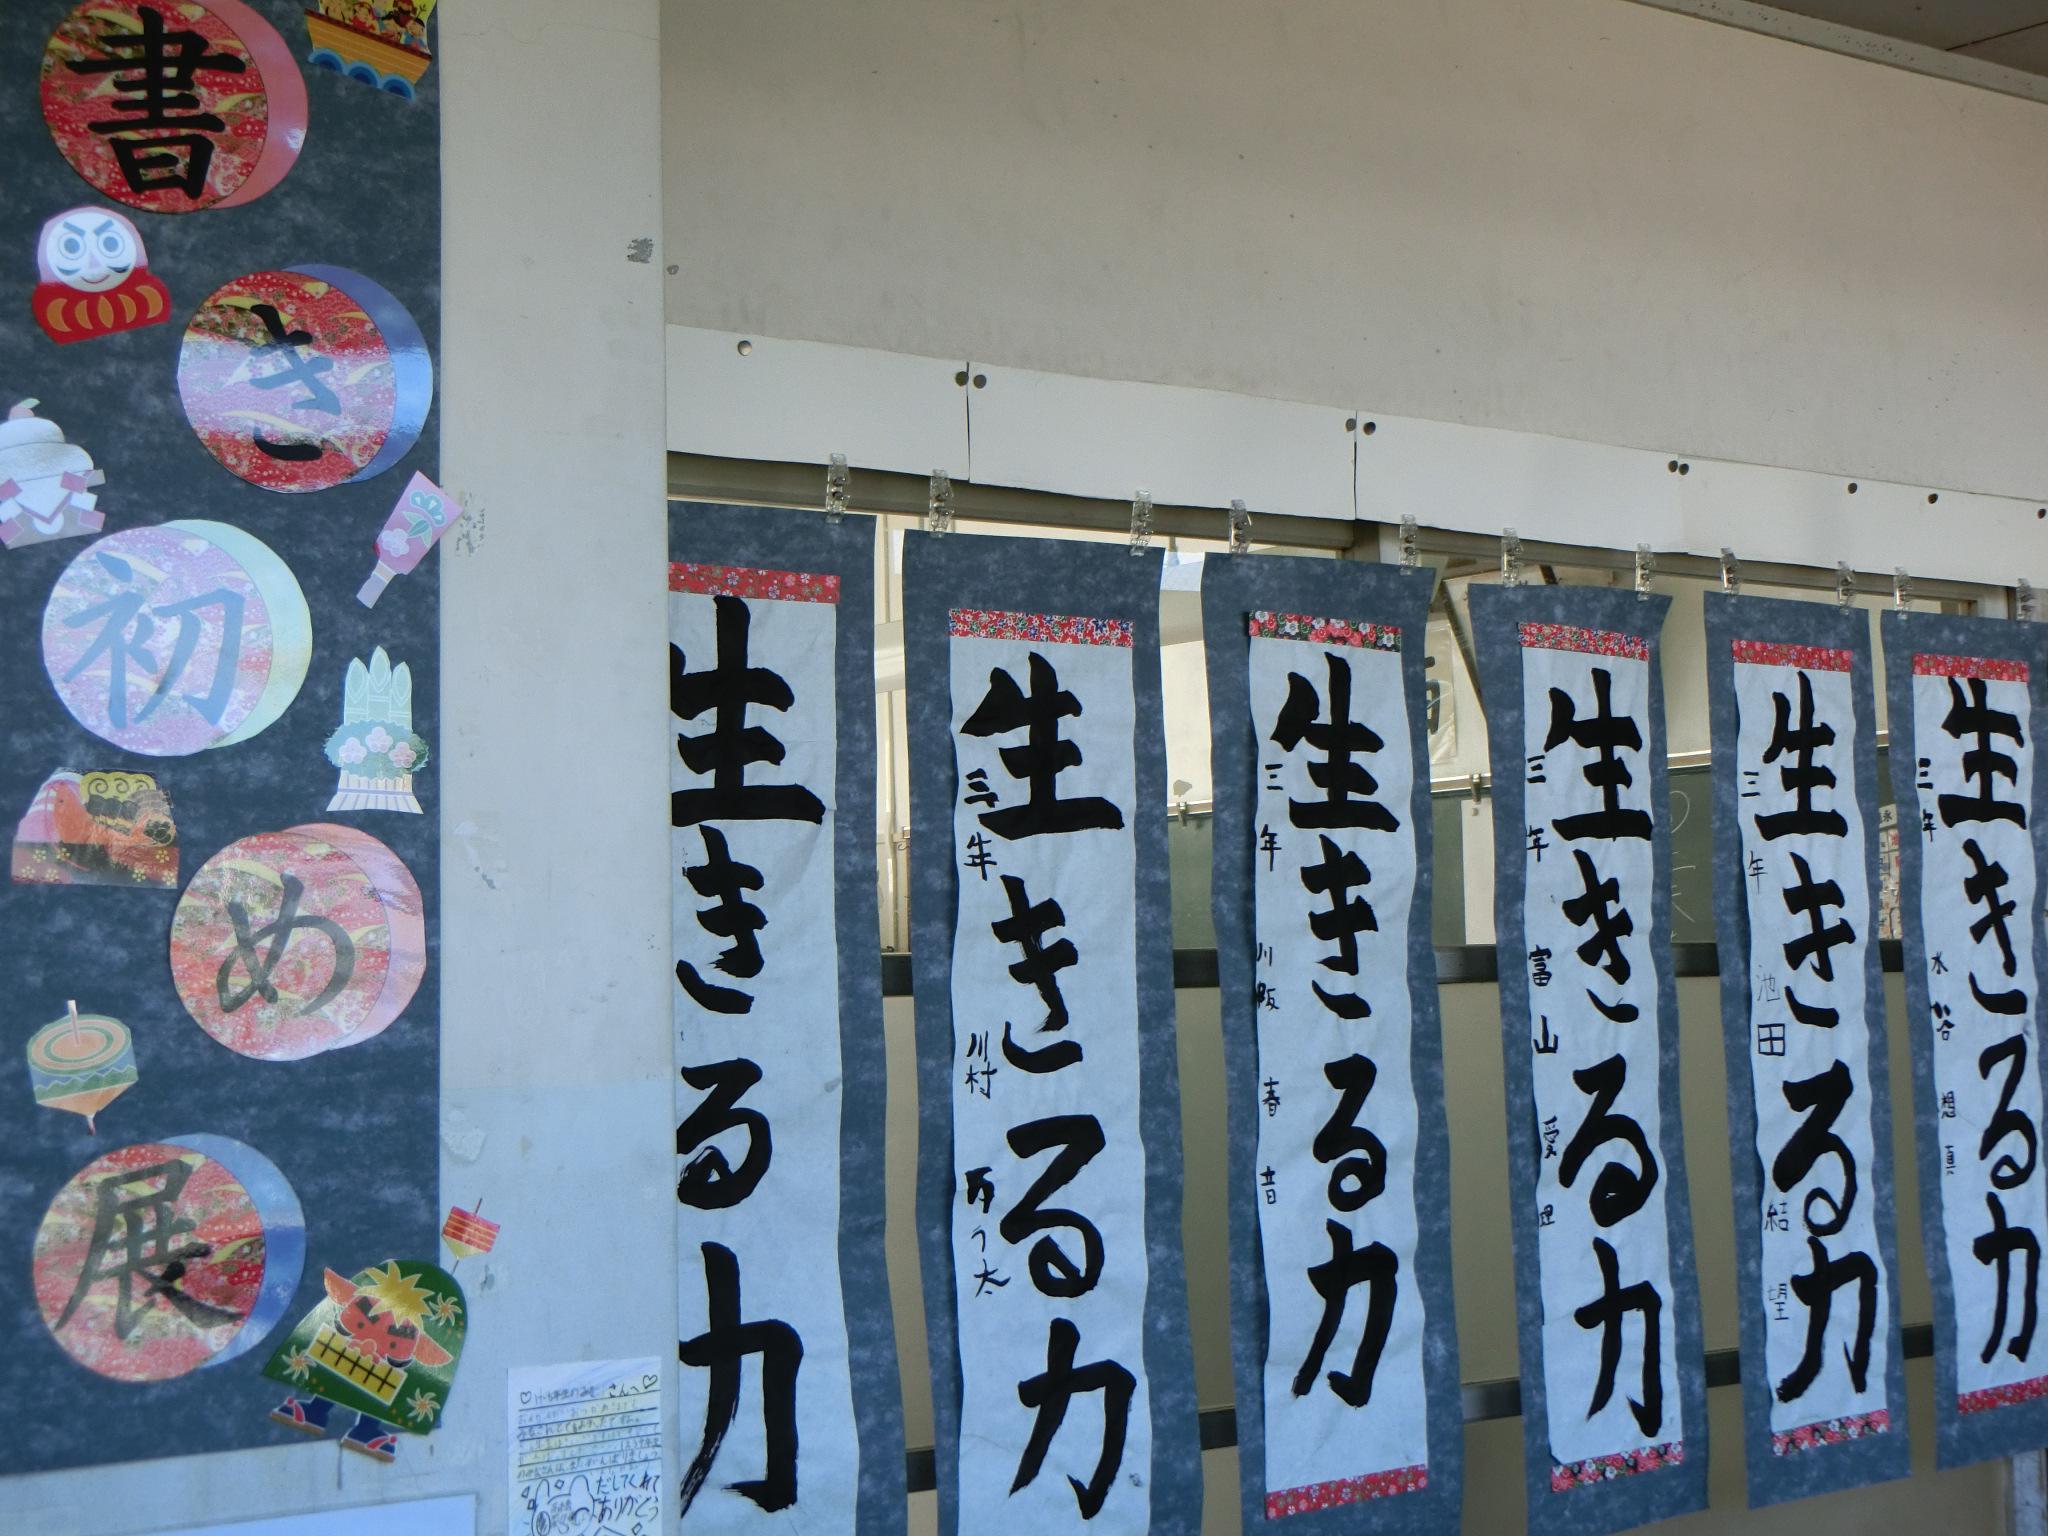 書き初め展
生きる力
生きる力
三年 川村
生きる力
三年 川阪 春音
生きる力
三年 富山 愛理
生きる力
三年 池田 結望
生きる力
三年 水谷 想真
さんへ
だしてくれて
ありがとう